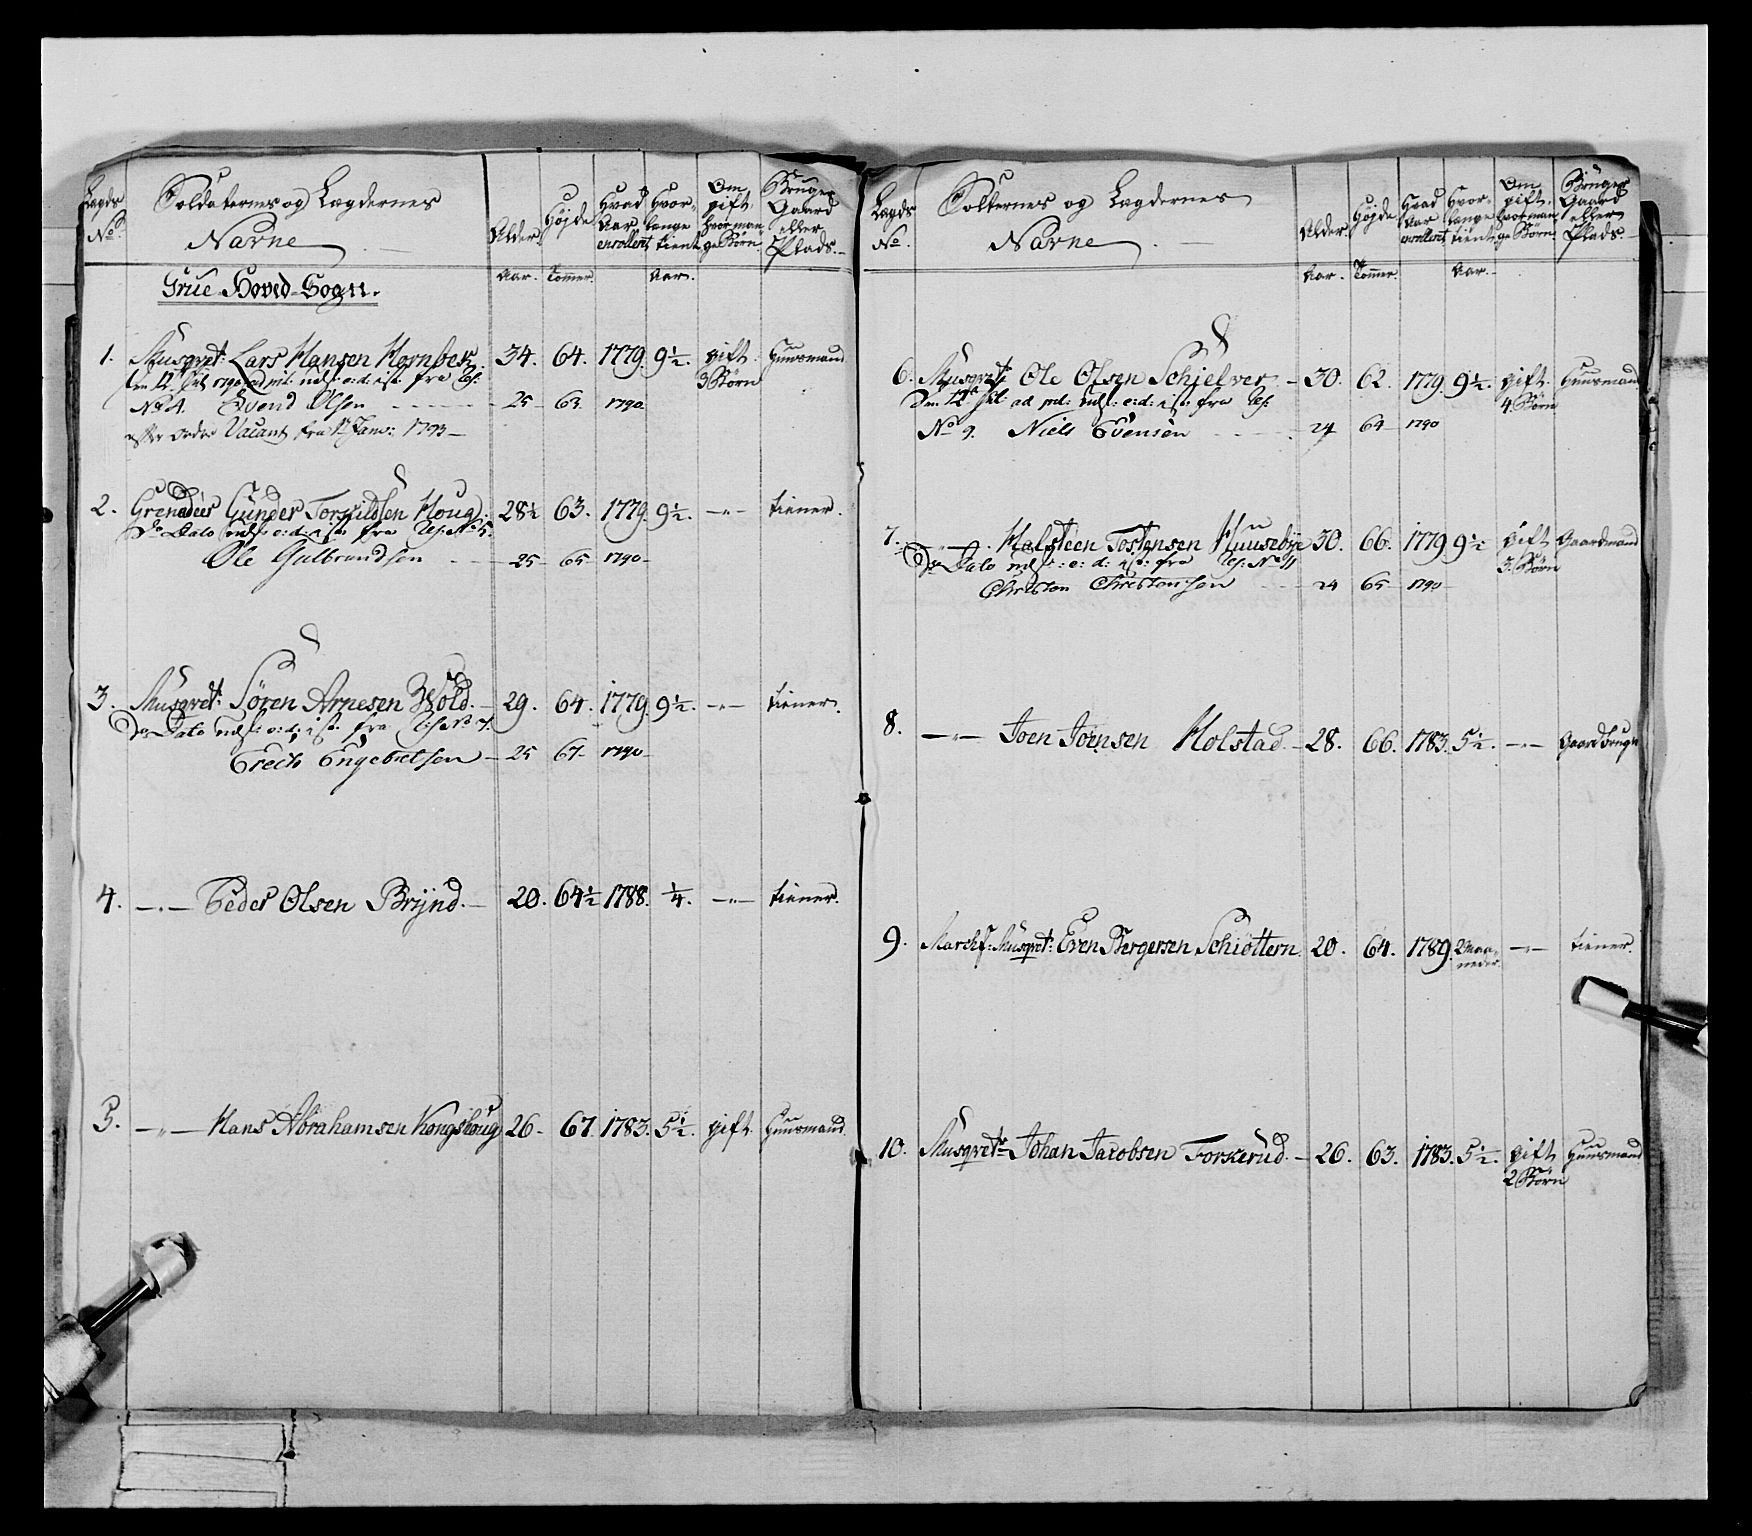 Lægds No. Soldaternes og Lægdernes Navne Alder. Højde Hvad Aar enrollert Hvor- længe tient Om gift, hvor man- ge Børn. Bruger Gaard eller Plads.
Aar. Tommer. Aar.
Grue Hoved-Sogn.
1. Musqvet: Lars Hansen Hornber. 34. 64. 1779. 9½. gift. Huusmand
3 Børn
No 4. Svend Olsen 25 63 1790
Vacant fra 1 Janv: 1793
2. Grenadeer Gunder Torkildsen Houg. 28½ 63. 1779. 9½. —"— tiener.
Do Dato fra No 5.
Ole Gulbrandsen 25 65 1790
3. Musqvet: Sören Arnesen Wold. 29. 64. 1779. 9½. —"— tiener.
Do Dato fra No 7.
Erech Engebretsen 25 67 1790
4. —"— Peder Olsen Brynd. 20. 64½ 1788. ¼. —"— tiener.
5. —"— Hans Abrahamsen Kongshoug 26. 67. 1783. 5½. gift. Huusmand
Lægds No. Solternes og Lægdernes Navne Alder. Højde Hvad Aar enrollert Hvor- længe tient Om gift, hvor man- ge Børn. Bruger Gaard eller Plads.
Aar. Tommer. Aar.
6. Musqvet: Ole Olsen Schjelver 30. 62. 1779. 9½. gift. Huusmand
4 Børn
No 9. Niels Evensen 24 64 1790
7. —"— Halsteen Tostensen Huusebye 30. 66. 1779 9½ gift Gaardmand
Do Dato fra No 11 3 Børn
Christen Christensen 24 65 1790
8. —"— Joen Joensen Holstad. 28. 66. 1783. 5½. —"— Gaardbruger
9. March: Musqvet: Even Bergersen Schiöttern. 20. 64. 1789. 2 Maa- neder. —"— tiener.
10. Musqvet: Johan Jacobsen Forkerud. 26. 63. 1783. 5½. gift Huusmand
2 Børn